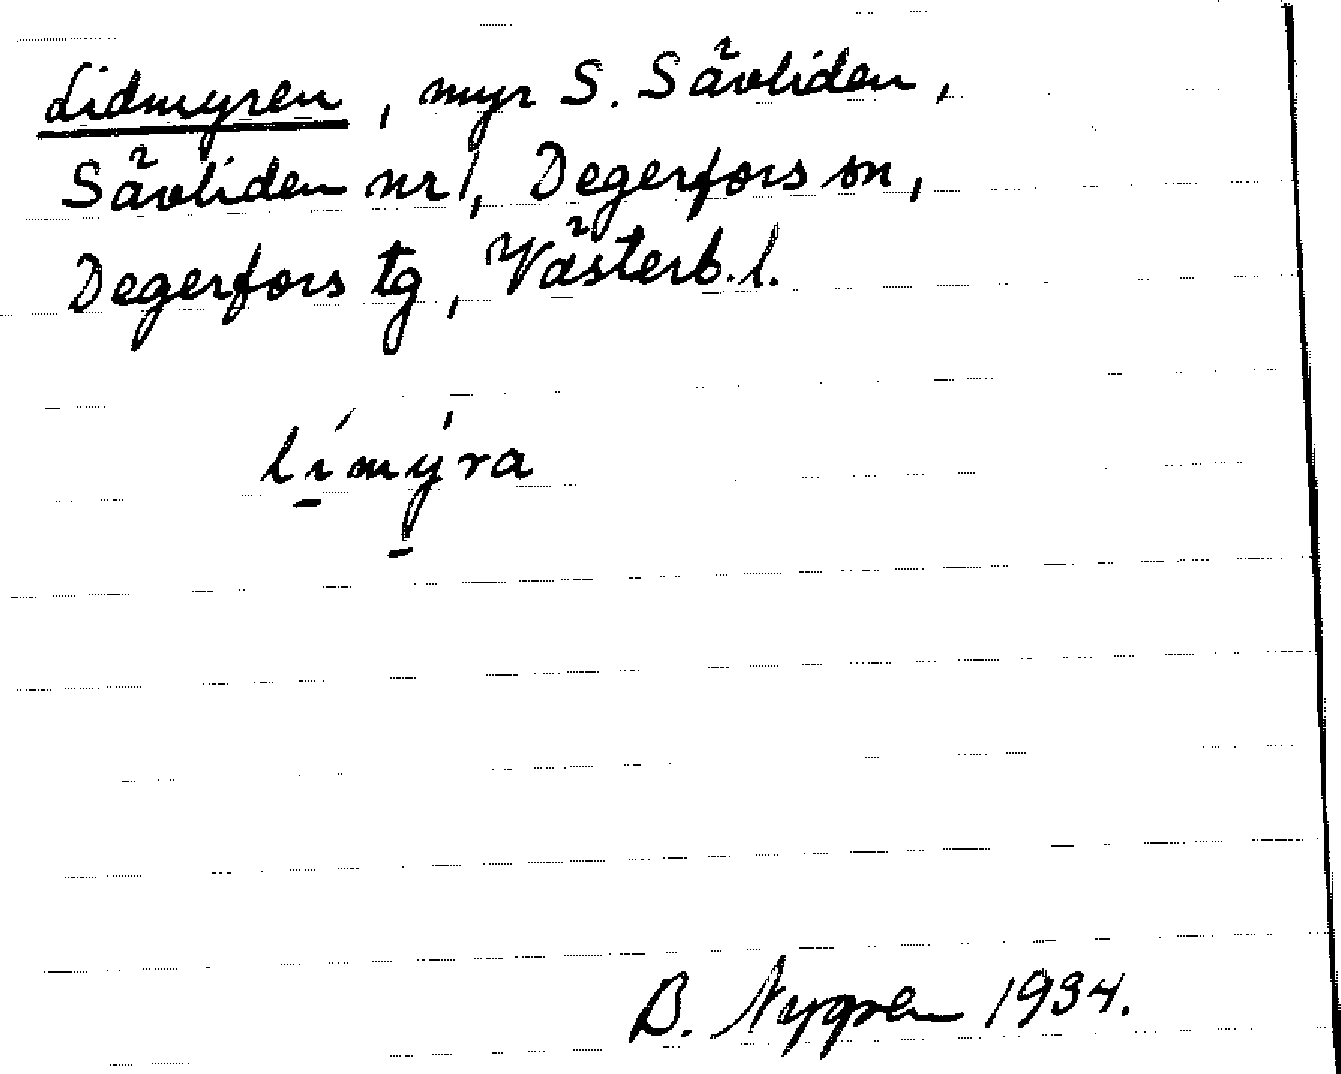 Lidmyren, myr S. Sävliden,
Sävliden nr 1, Degerfors sn,
Degerfors tg, Västerb. l.
lí̱mý̱ra
B. Nygren 1934.